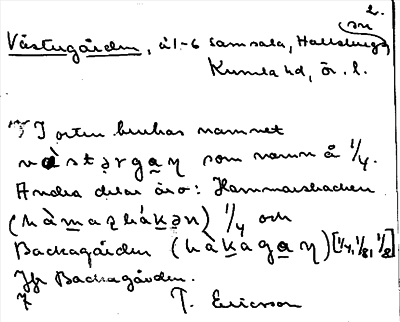 2.
Västergården, å 1-6 Samsala, Hallsbergs sn
Kumla hd, ör. l.
I orten brukas namnet
vàstərgaŋ som namn å 1/4.
Andra delar äro: Hammarsbacken
(hàmazbákən) 1/4 och
Backagården (bàkagaŋ) [1/4, 1/8, 1/8]
Jfr Backagården.
T. Ericsson